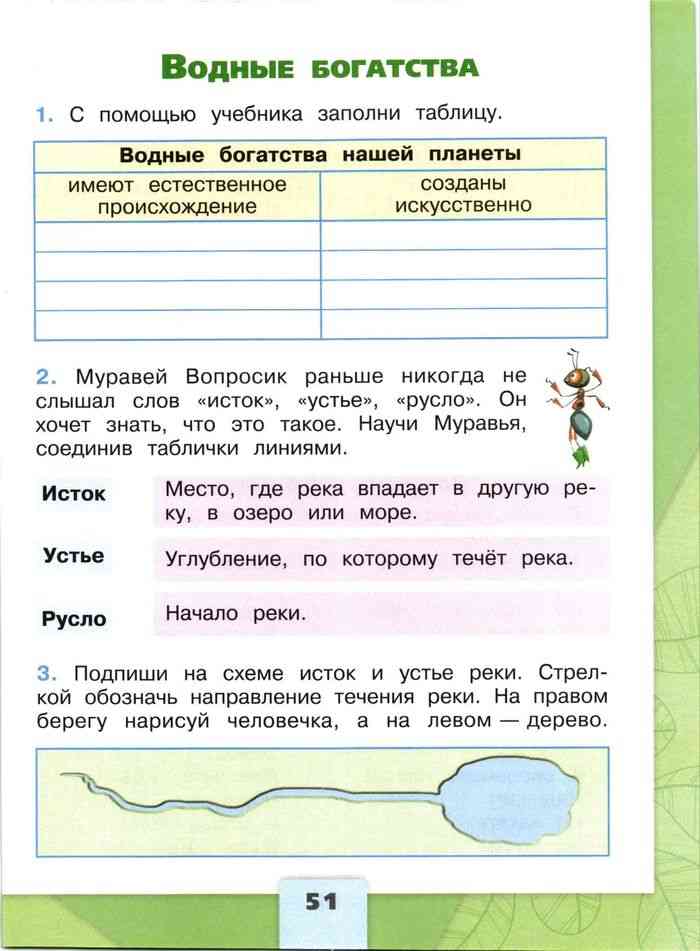 Водные богатства
1. С помощью учебника заполни таблицу.
Водные богатства нашей планеты
имеют естественное
происхождение
созданы
искусственно
2. Муравей Вопросик раньше никогда не
слышал слов «исток», «устье», «русло». Он
хочет знать, что это такое. Научи Муравья,
соединив таблички линиями.
Исток
Место, где река впадает в другую ре-
ку, в озеро или море.
Устье
Углубление, по которому течёт река.
Русло
Начало реки.
3. Подпиши на схеме исток и устье реки. Стрел-
кой обозначь направление течения реки. На правом
берегу нарисуй человечка, а на левом — дерево.
51